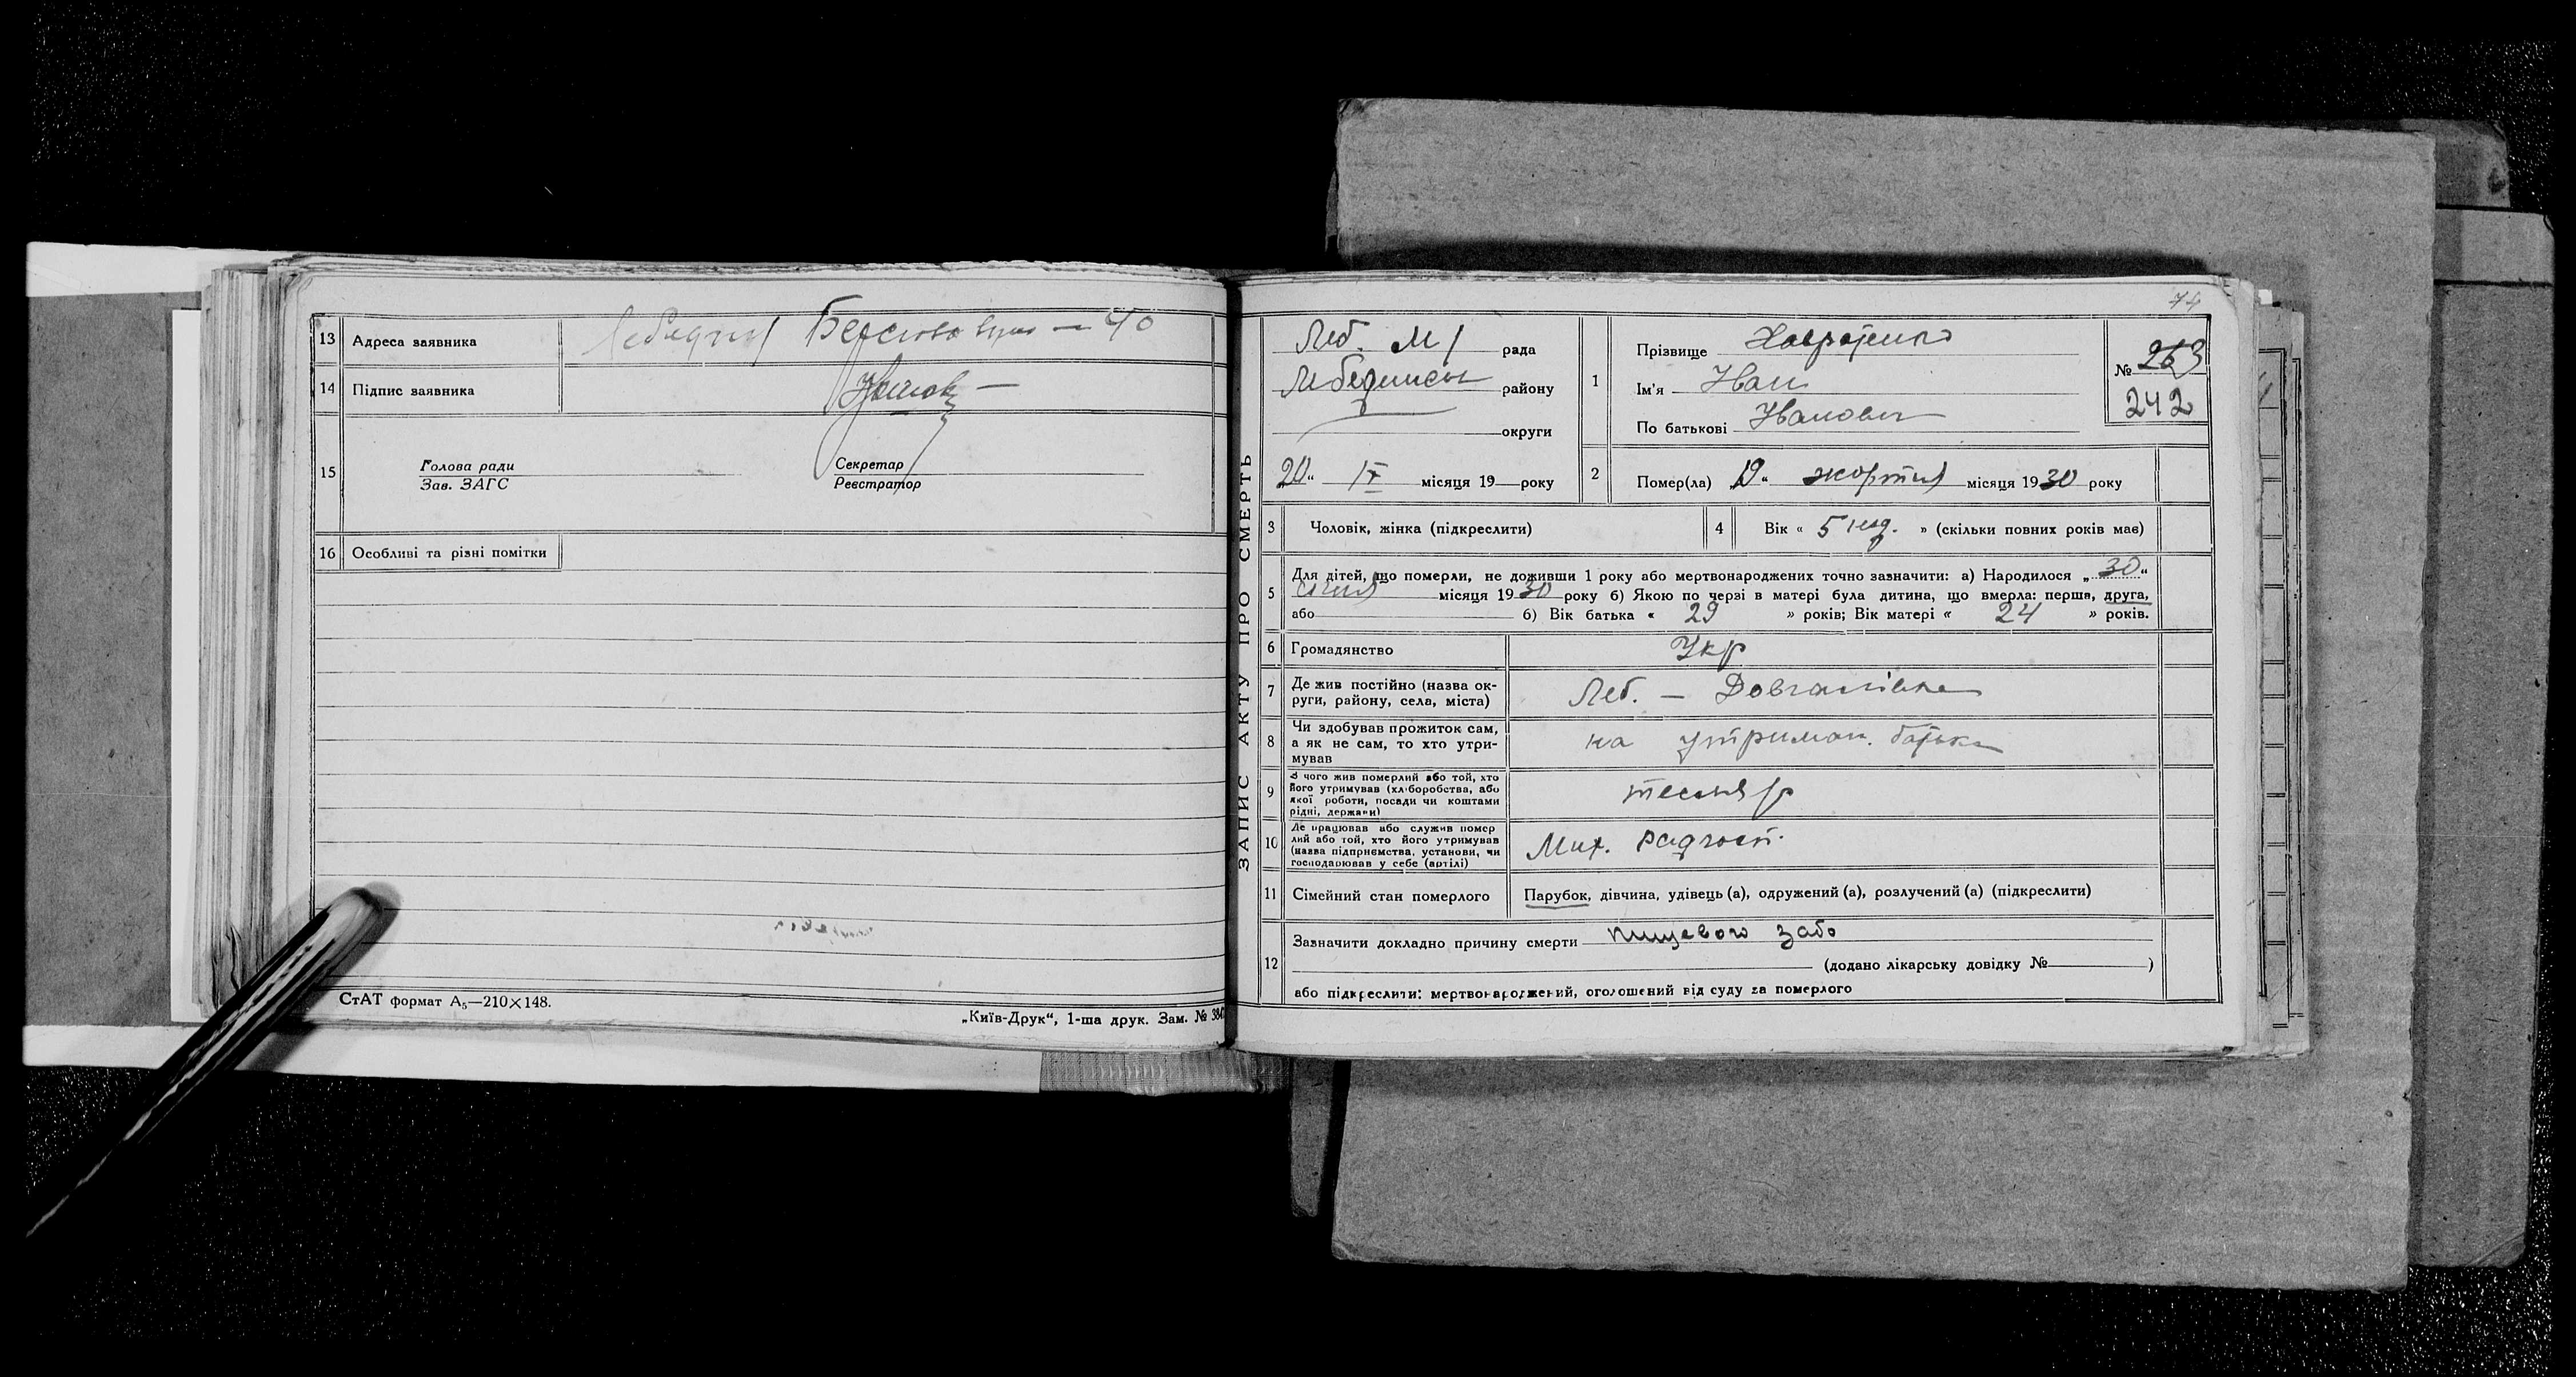 13 Адреса заявника Лебедин Берегова вул — 40
14 Підпис заявника
15 Голова ради Секретар
Зав. ЗАГС Реєстратор
16 Особливі та різні помітки
СтАТ формат А₅—210×148.
„Київ-Друк“, 1-ша друк. Зам. № 384
ЗАПИС АКТУ ПРО СМЕРТЬ
74
Леб. М/ рада
району
округи
20 “ IX місяця 19 року
1 Прізвище
Ім'я Иван
По батькові Иванович
№ 263
242
2 Помер(ла) „19“ жортня місяця 1930 року
3 Чоловік, жінка (підкреслити)
4 Вік « 5 нед. » (скільки повних років має)
5 Для дітей, що померли, не доживши 1 року або мертвонароджених точно зазначити: а) Народилося „30“
січня місяця 1930 року б) Якою по черзі в матері була дитина, що вмерла: перша, друга,
або б) Вік батька « 29 » років; Вік матері « 24 » років.
6 Громадянство Укр
7 Де жив постійно (назва ок-
руги, району, села, міста) Леб. —
8 Чи здобував прожиток сам,
а як не сам, то хто утри-
мував на утриман. батька
9 З чого жив померлий або той, хто
його утримував (хліборобства, або
якої роботи, посади чи коштами
рідні, держави) тесляр
10 Де працював або служив помер
лий або той, хто його утримував
(назва підприємства, установи, чи
господарював у себе (артілі) Мих. радгосп.
11 Сімейний стан померлого Парубок, дівчина, удівець (а), одружений (а), розлучений (а) (підкреслити)
12 Зазначити докладно причину смерти пищевого забо
(додано лікарську довідку № )
або підкреслити: мертвонароджений, оголошений від суду за померлого